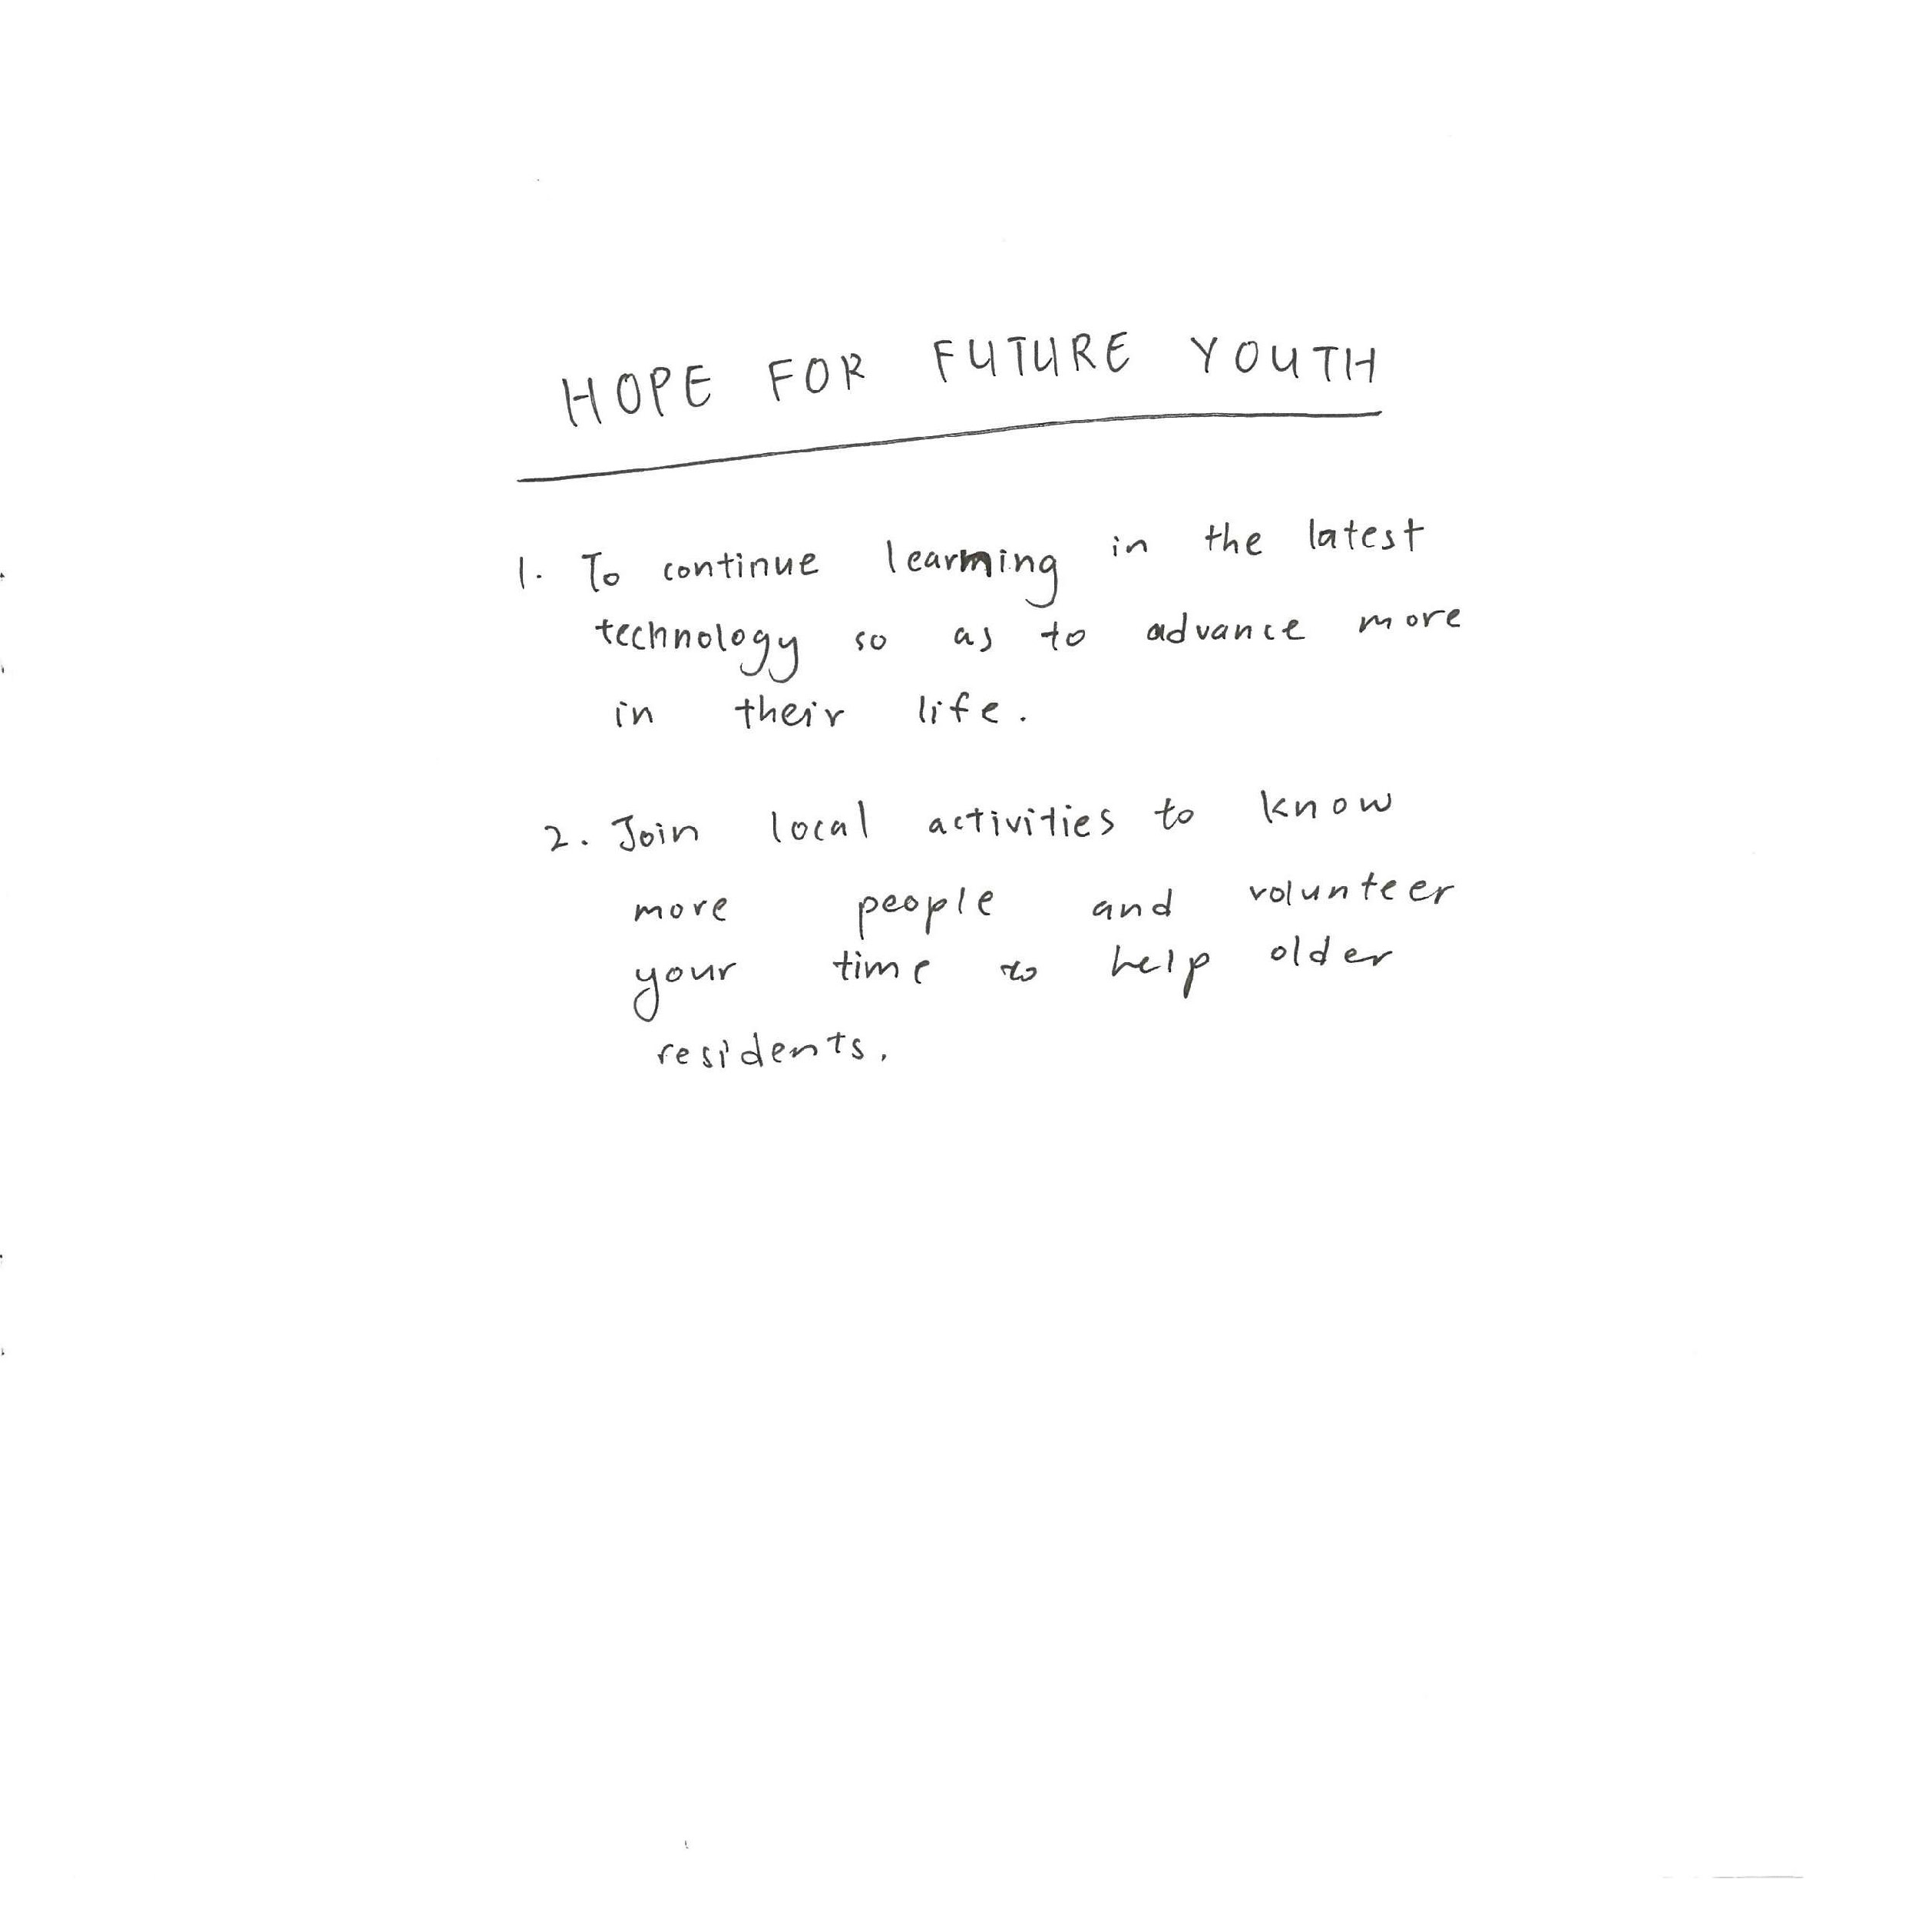 HOPE FOR FUTURE YOUTH
1. To continue learning in the latest
technology so as to advance more
in their life.
2. Join local activities to know
more people and volunteer
your time to help older
residents.